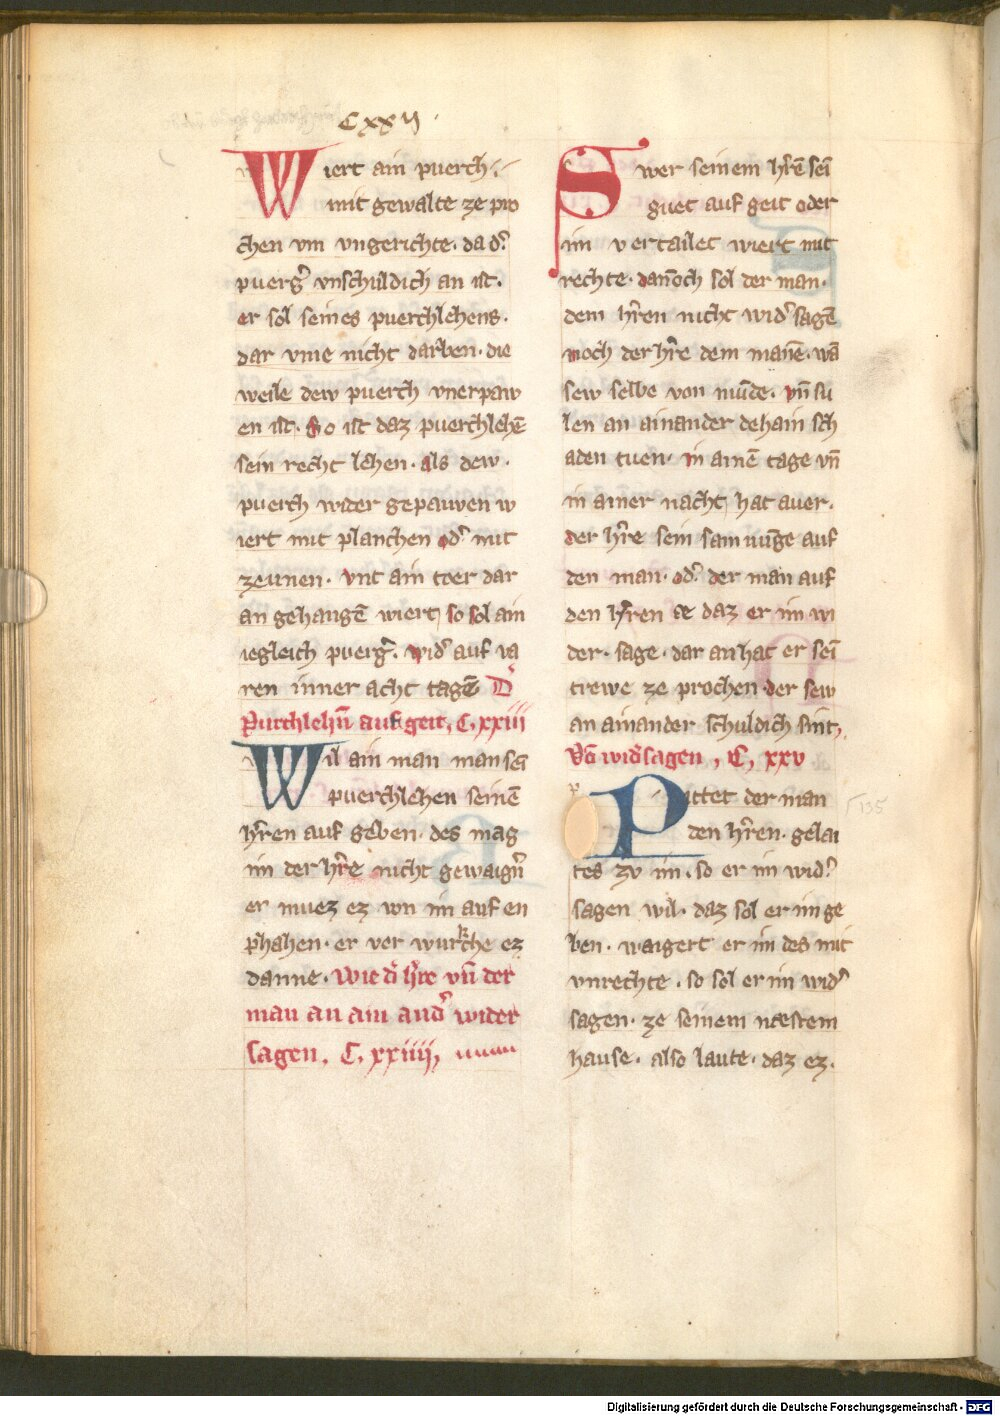 Cxxij
Wiert ain puerch
mit gewalte ze pro
chen vm vngerichte· da d͛
puerg͛ vnschuldich an ist·
er sol seines puerchlehens·
dar vme nicht darben· die
weile dew puerch vnerpaw
en ist· So ist daz puerchlehē
sein recht lehen· als dew·
puerch wider gepauwen w
iert mit planchen od͛ mit
zeunen· vnt ain toer dar
an gehangē wiert so sol ain
iegleich puerg͛· wid͛ auf va
ren inner acht tagē D͛
Purchlehn̄ auf geit, C, xxiii
Wil ain man man sei
puerchlehen seinē
hr̄ren auf geben· des mag
im der hr̄re nicht gewaign̄
er muez ez von im auf en
phahen· er ver wurkche ez
danne· Wie d͛ hr̄re vn̄ der
man an ain and͛ wider
sagen, C, xxiiii,
Swer seinem hr̄rē sei
guet auf geit oder
im vertailet wiert mit
rechte· dan̄och sol der man·
dem hr̄ren nicht wid͛ sagē
noch der hr̄re dem man̄e· wā
sew selbe von mūde· vn̄ su
len an ainander dehain sch
aden tuen· in ainē tage vn̄
in ainer nacht hat auer·
der hr̄re sein samnūge auf
den man· od͛ der man auf
den hr̄ren ae daz er im wi
der· sage· dar an hat er sei
trewe ze prochen· der sew
an ainander schuldich sint,
Vō wid͛sagen, C, xxv
Pittet der man
den hr̄ren· gelai
135
tes zv im· so er im wid͛
sagen wil· daz sol er im ge
ben· waigert er im des mit
vnrechte· so sol er im wid͛
sagen· ze seinem nestem
hause· also laute· daz ez·
Digitalisierung gefördert durch die Deutsche Forschungsgemeinschaft - DFG